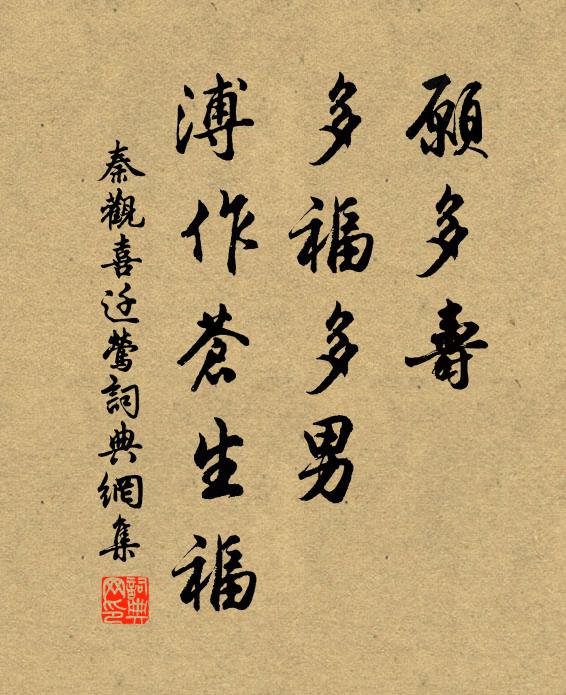 願多壽
多福多男
溥作蒼生福
秦觀喜迁鶯詞典網集
詞典网印